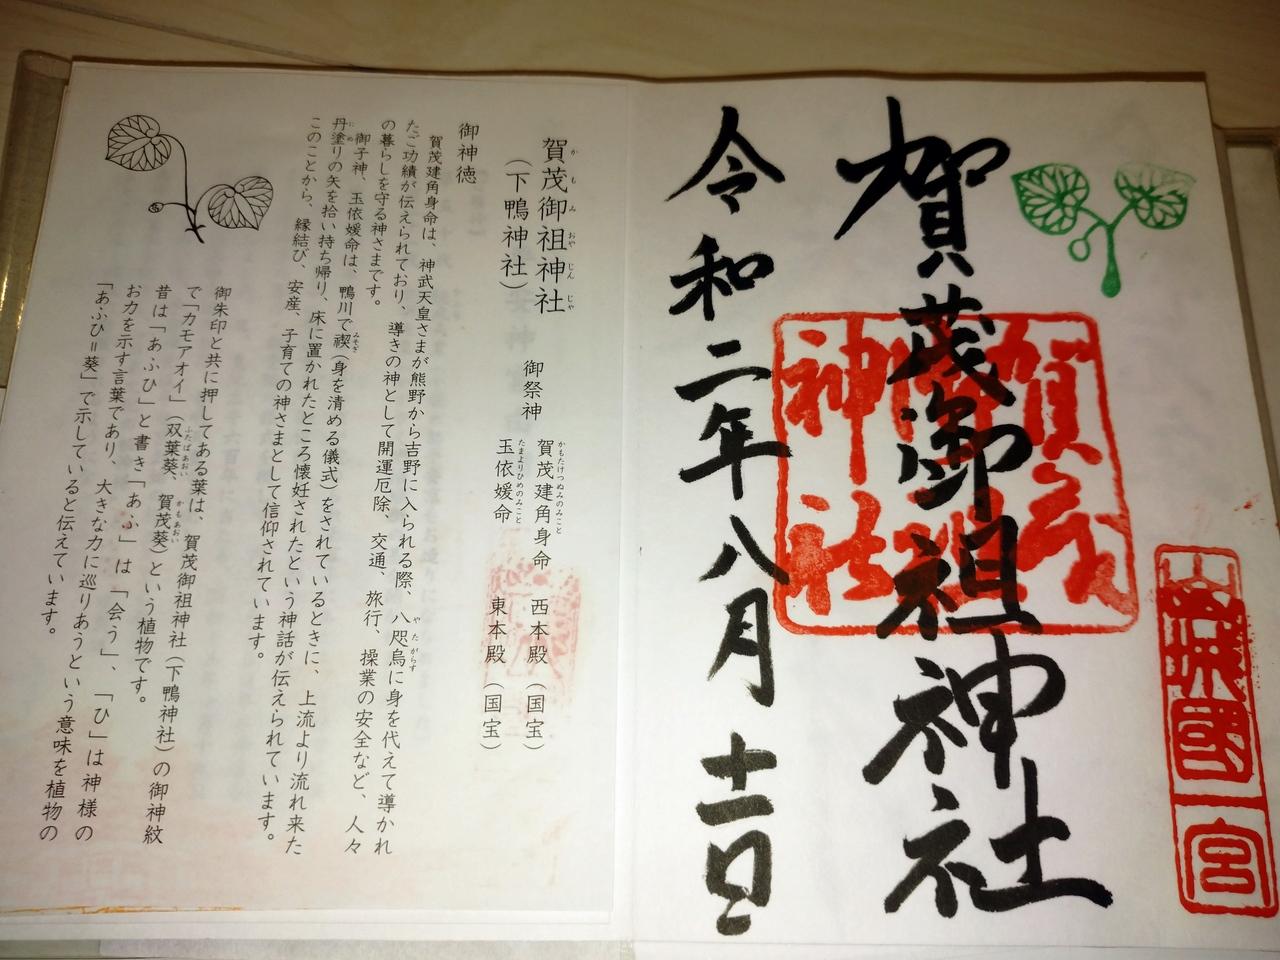 山城國一宮
賀茂御祖神社
賀茂御祖神社
令和二年八月十一日
賀茂御祖神社
かもみおやじんじゃ
（下鴨神社）
御祭神
賀茂建角身命　西本殿（国宝）
かもたけつぬみのみこと
玉依媛命　東本殿（国宝）
たまよりひめのみこと
御神徳
賀茂建角身命は、神武天皇さまが熊野から吉野に入られる際、八咫烏に身を代えて導かれ
やたがらす
たご功績が伝えられており、導きの神として開運厄除、交通、旅行、操業の安全など、人々
の暮らしを守る神さまです。
御子神、玉依媛命は、鴨川で禊（身を清める儀式）をされているときに、上流より流れ来た
みそぎ
丹塗りの矢を拾い持ち帰り、床に置かれたところ懐妊されたという神話が伝えられています。
にぬ
このことから、縁結び、安産、子育ての神さまとして信仰されています。
御朱印と共に押してある葉は、賀茂御祖神社（下鴨神社）の御神紋
で「カモアオイ」（双葉葵、賀茂葵）という植物です。
ふたばあおい
かもあおい
昔は「あふひ」と書き「あふ」は「会う」、「ひ」は神様の
お力を示す言葉であり、大きな力に巡りあうという意味を植物の
「あふひ＝葵」で示していると伝えています。